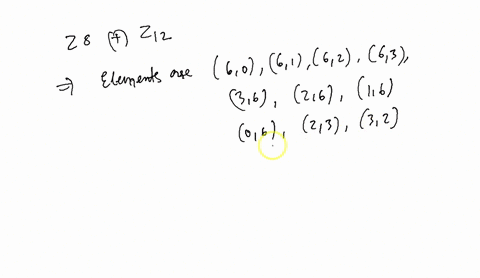 Z8 (+) Z12
⇒ Elements are (6,0), (6,1), (6,2), (6,3),
(3,6), (2,6), (1,6)
(0,6), (2,3), (3,2)